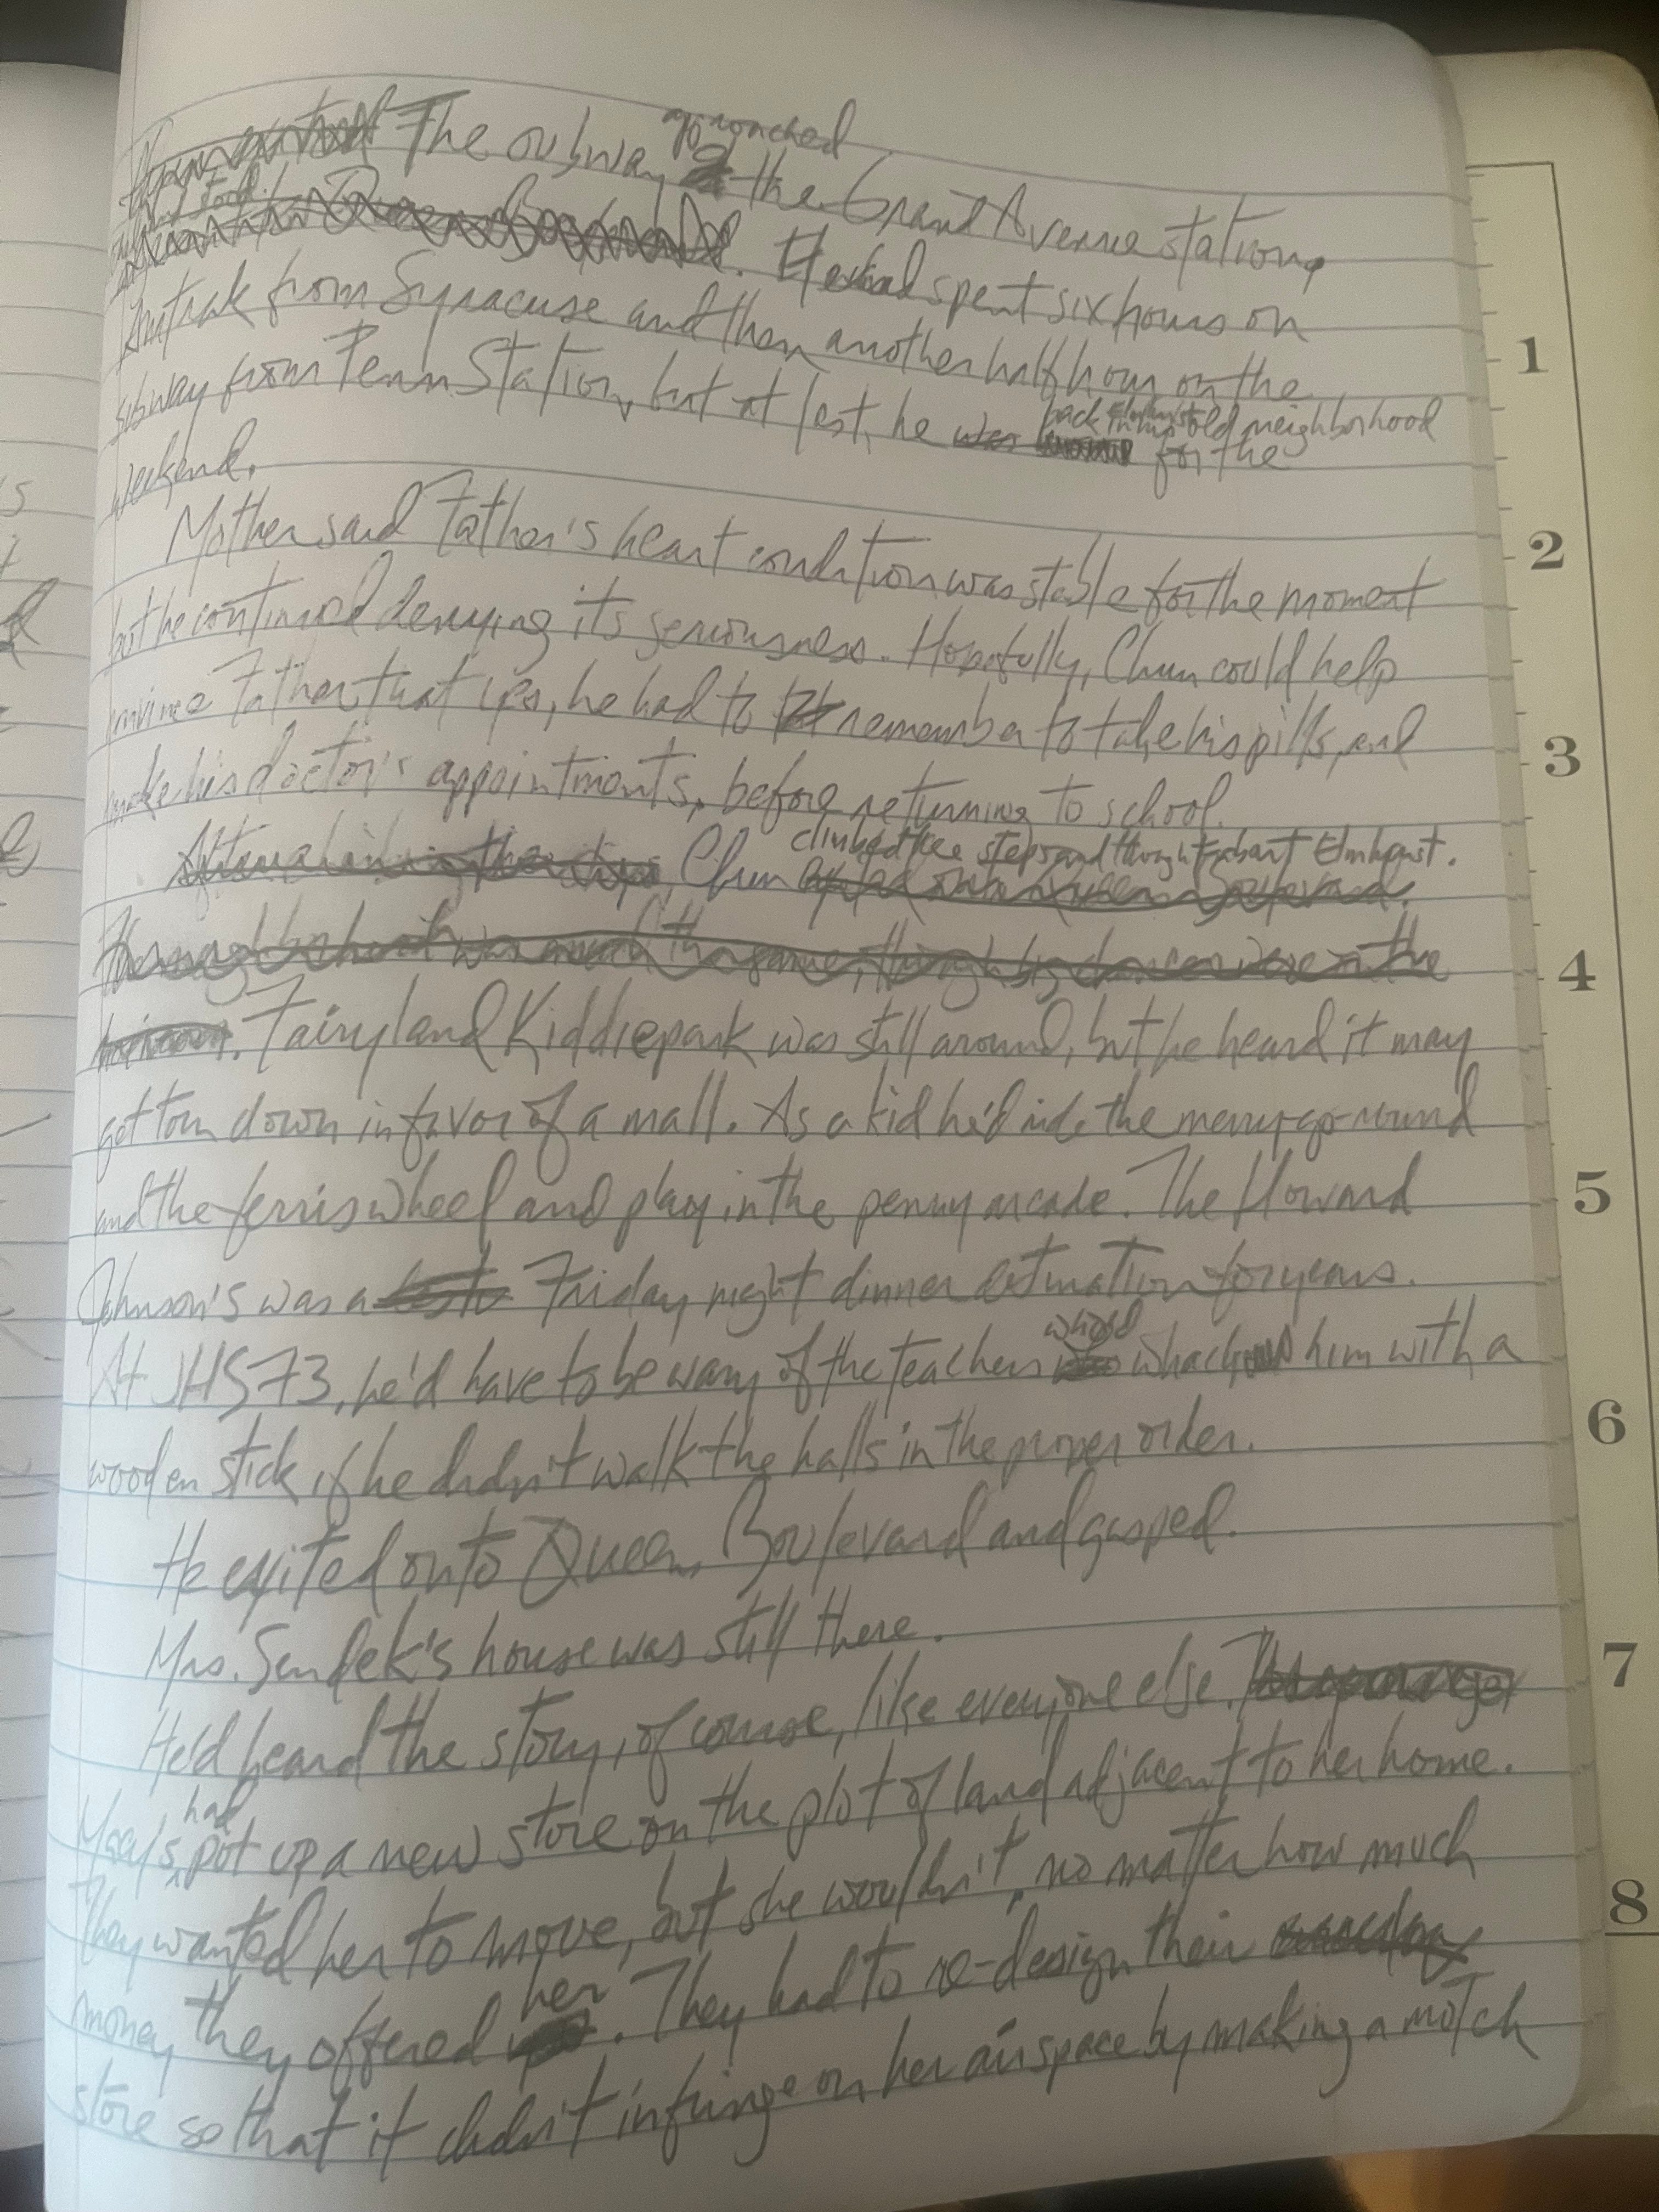 The subway approached the Grand Avenue station,
and stood. He had spent six hours on
Amtrak from Syracuse and then another half hour on the
subway from Penn Station, but at last, he was back in his Elmhurst old neighborhood for the
weekend.
Mother said Father's heart condition was stable for the moment
but he continued denying its seriousness. Hopefully, Chun could help
convince Father that yes, he had to remember to take his pills, and
make his doctor's appointments, before returning to school.
After climbing the steps, Chun climbed the steps and thought about Elmhurst.
exited onto Queens Boulevard.
The neighborhood was much the same, though big changes were on the
horizon. Fairyland Kiddiepark was still around, but he heard it may
get torn down in favor of a mall. As a kid he'd ride the merry-go-round
and the ferris wheel and play in the penny arcade. The Howard
Johnson's was a Friday night dinner destination for years.
At JHS 73, he'd have to be wary of the teachers who'd whack him with a
wooden stick if he didn't walk the halls in the proper order.
He exited onto Queens Boulevard and gasped.
Mrs. Sendek's house was still there.
He'd heard the story, of course, like everyone else.
Macy's had put up a new store on the plot of land adjacent to her home.
They wanted her to move, but she wouldn't, no matter how much
money they offered her. They had to re-design their
store so that it didn't infringe on her air space by making a notch
1
2
3
4
5
6
7
8